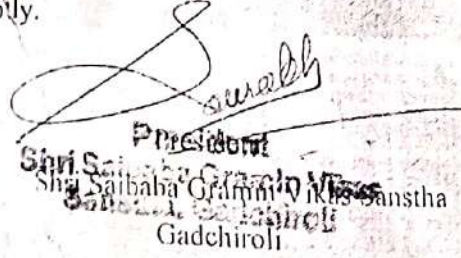 Saurabh
President
Shri Saibaba Gramin Vikas Sanstha
Gadchiroli